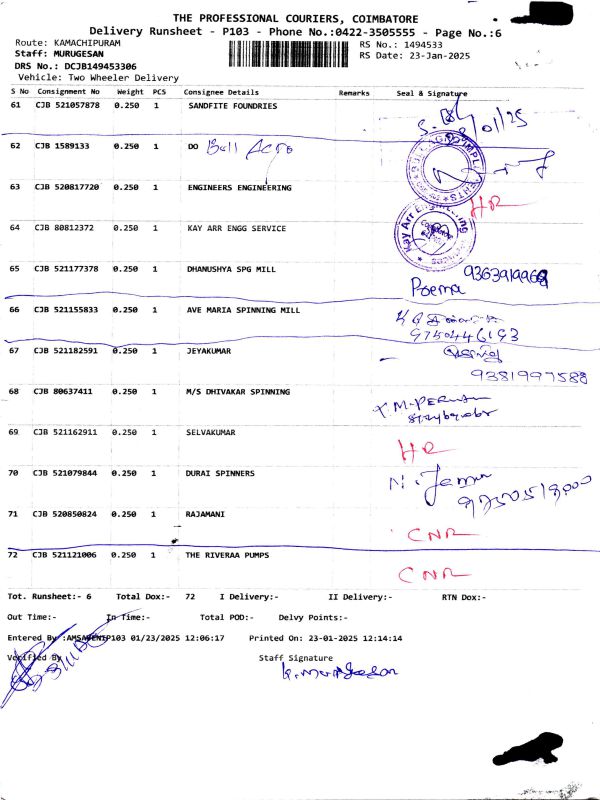 THE PROFESSIONAL COURIERS, COIMBATORE
Delivery Runsheet - P103 - Phone No.:0422-3505555 - Page No.:6
Route: KAMACHIPURAM
RS No.: 1494533
Staff: MURUGESAN
RS Date: 23-Jan-2025
DRS No.: DCJB149453306
Vehicle: Two Wheeler Delivery
S No Consignment No Weight PCS Consignee Details Remarks Seal & Signature
61 CJB 521057878 0.250 1 SANDFITE FOUNDRIES
62 CJB 1589133 0.250 1 DO Bull Agro
63 CJB 520817720 0.250 1 ENGINEERS ENGINEERING HR
64 CJB 80812372 0.250 1 KAY ARR ENGG SERVICE Kay Arr Engineering
65 CJB 521177378 0.250 1 DHANUSHYA SPG MILL
66 CJB 521155833 0.250 1 AVE MARIA SPINNING MILL
9750446193
67 CJB 521182591 0.250 1 JEYAKUMAR
9381997588
68 CJB 80637411 0.250 1 M/S DHIVAKAR SPINNING
69 CJB 521162911 0.250 1 SELVAKUMAR HR
70 CJB 521079844 0.250 1 DURAI SPINNERS
71 CJB 520850824 0.250 1 RAJAMANI CNR
72 CJB 521121006 0.250 1 THE RIVERAA PUMPS CNR
Tot. Runsheet:- 6 Total Dox:- 72 I Delivery:- II Delivery:- RTN Dox:-
Out Time:- In Time:- Total POD:- Delvy Points:-
Entered By 01/23/2025 12:06:17 Printed On: 23-01-2025 12:14:14
Verified By Staff Signature